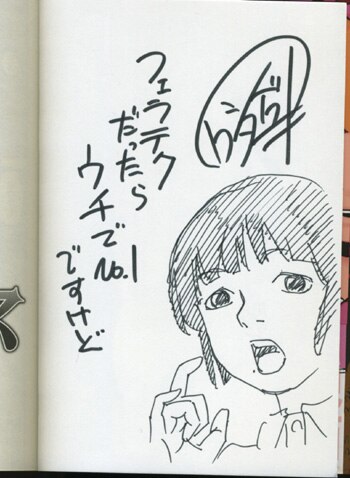 フェラテク
だったら
ウチで
No.1
ですけど
ス